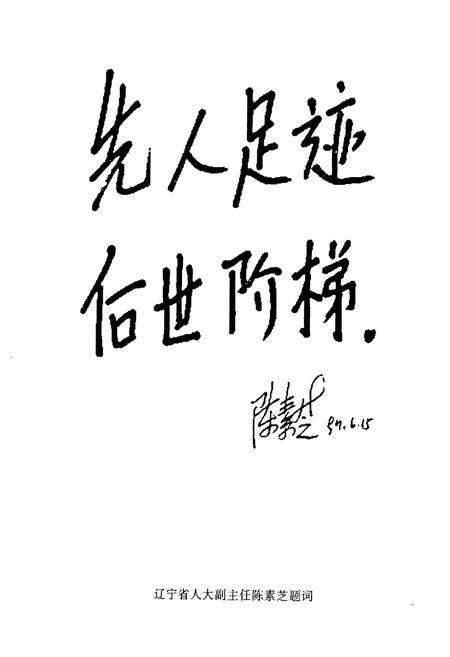 先人足迹
后世阶梯.
陈素芝 97.6.15
辽宁省人大副主任陈素芝题词